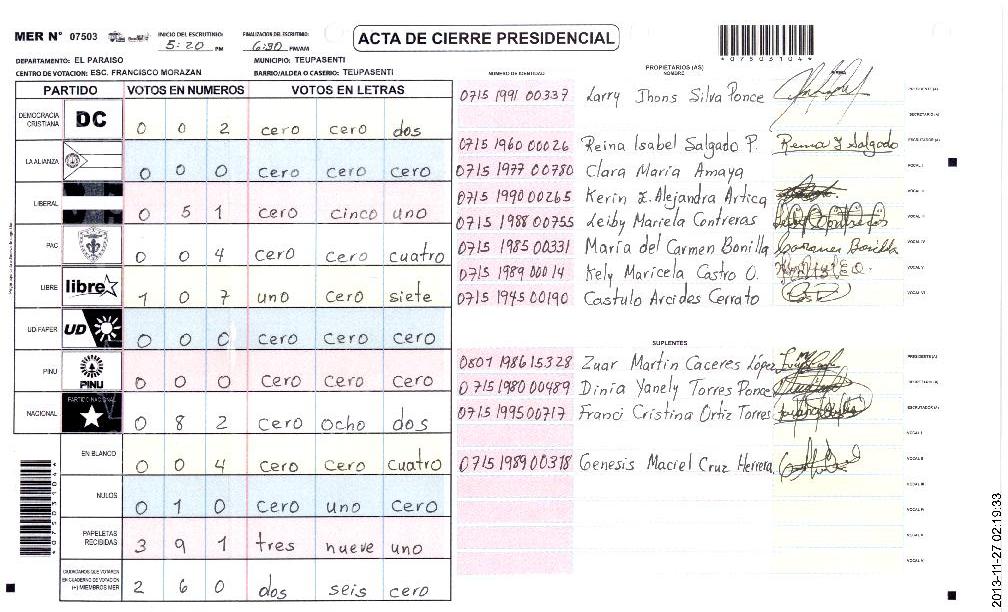 MER N° 07503
INICIO DEL ESCRUTINIO: 5:20 PM
FINALIZACION DEL ESCRUTINIO: 6:30 PM/AM
ACTA DE CIERRE PRESIDENCIAL
*07503104*
DEPARTAMENTO: EL PARAISO
MUNICIPIO: TEUPASENTI
CENTRO DE VOTACION: ESC. FRANCISCO MORAZAN
BARRIO/ALDEA O CASERIO: TEUPASENTI
PARTIDO VOTOS EN NUMEROS VOTOS EN LETRAS
DEMOCRACIA CRISTIANA DC 0 0 2 cero cero dos
LA ALIANZA 0 0 0 cero cero cero
LIBERAL 0 5 1 cero cinco uno
PAC 0 0 4 cero cero cuatro
LIBRE libre 1 0 7 uno cero siete
UD FAPER UD 0 0 0 cero cero cero
PINU PINU 0 0 0 cero cero cero
NACIONAL PARTIDO NACIONAL 0 8 2 cero ocho dos
EN BLANCO 0 0 4 cero cero cuatro
NULOS 0 1 0 cero uno cero
PAPELETAS RECIBIDAS 3 9 1 tres nueve uno
CIUDADANOS QUE VOTARON EN CUADERNO DE VOTACION (+) MIEMBROS MER 2 6 0 dos seis cero
*07503104*
NUMERO DE IDENTIDAD
PROPIETARIOS (AS)
NOMBRE
FIRMA
0715 1991 00337 Larry Jhons Silva Ponce PRESIDENTE (A)
SECRETARIO (A)
0715 1960 00026 Reina Isabel Salgado P. Reina I Salgado ESCRUTADOR (A)
0715 1977 00780 Clara Maria Amaya VOCAL I
0715 1990 00265 Kerin Z. Alejandra Artica VOCAL II
0715 1988 00755 Leiby Mariela Contreras VOCAL III
0715 1985 00331 Maria del Carmen Bonilla Bonilla VOCAL IV
0715 1989 00014 Kely Maricela Castro O. VOCAL V
0715 1945 00190 Castulo Arcides Cerrato VOCAL VI
SUPLENTES
0801 1986 15328 Zuar Martin Caceres López PRESIDENTE (A)
0715 1980 00489 Dinia Yanely Torres Ponce SECRETARIO (A)
0715 1995 00717 Franci Cristina Ortiz Torres ESCRUTADOR (A)
VOCAL I
0715 1989 00318 Genesis Maciel Cruz Herrera VOCAL II
VOCAL III
VOCAL IV
VOCAL V
VOCAL VI
2013-11-27 02:19:33